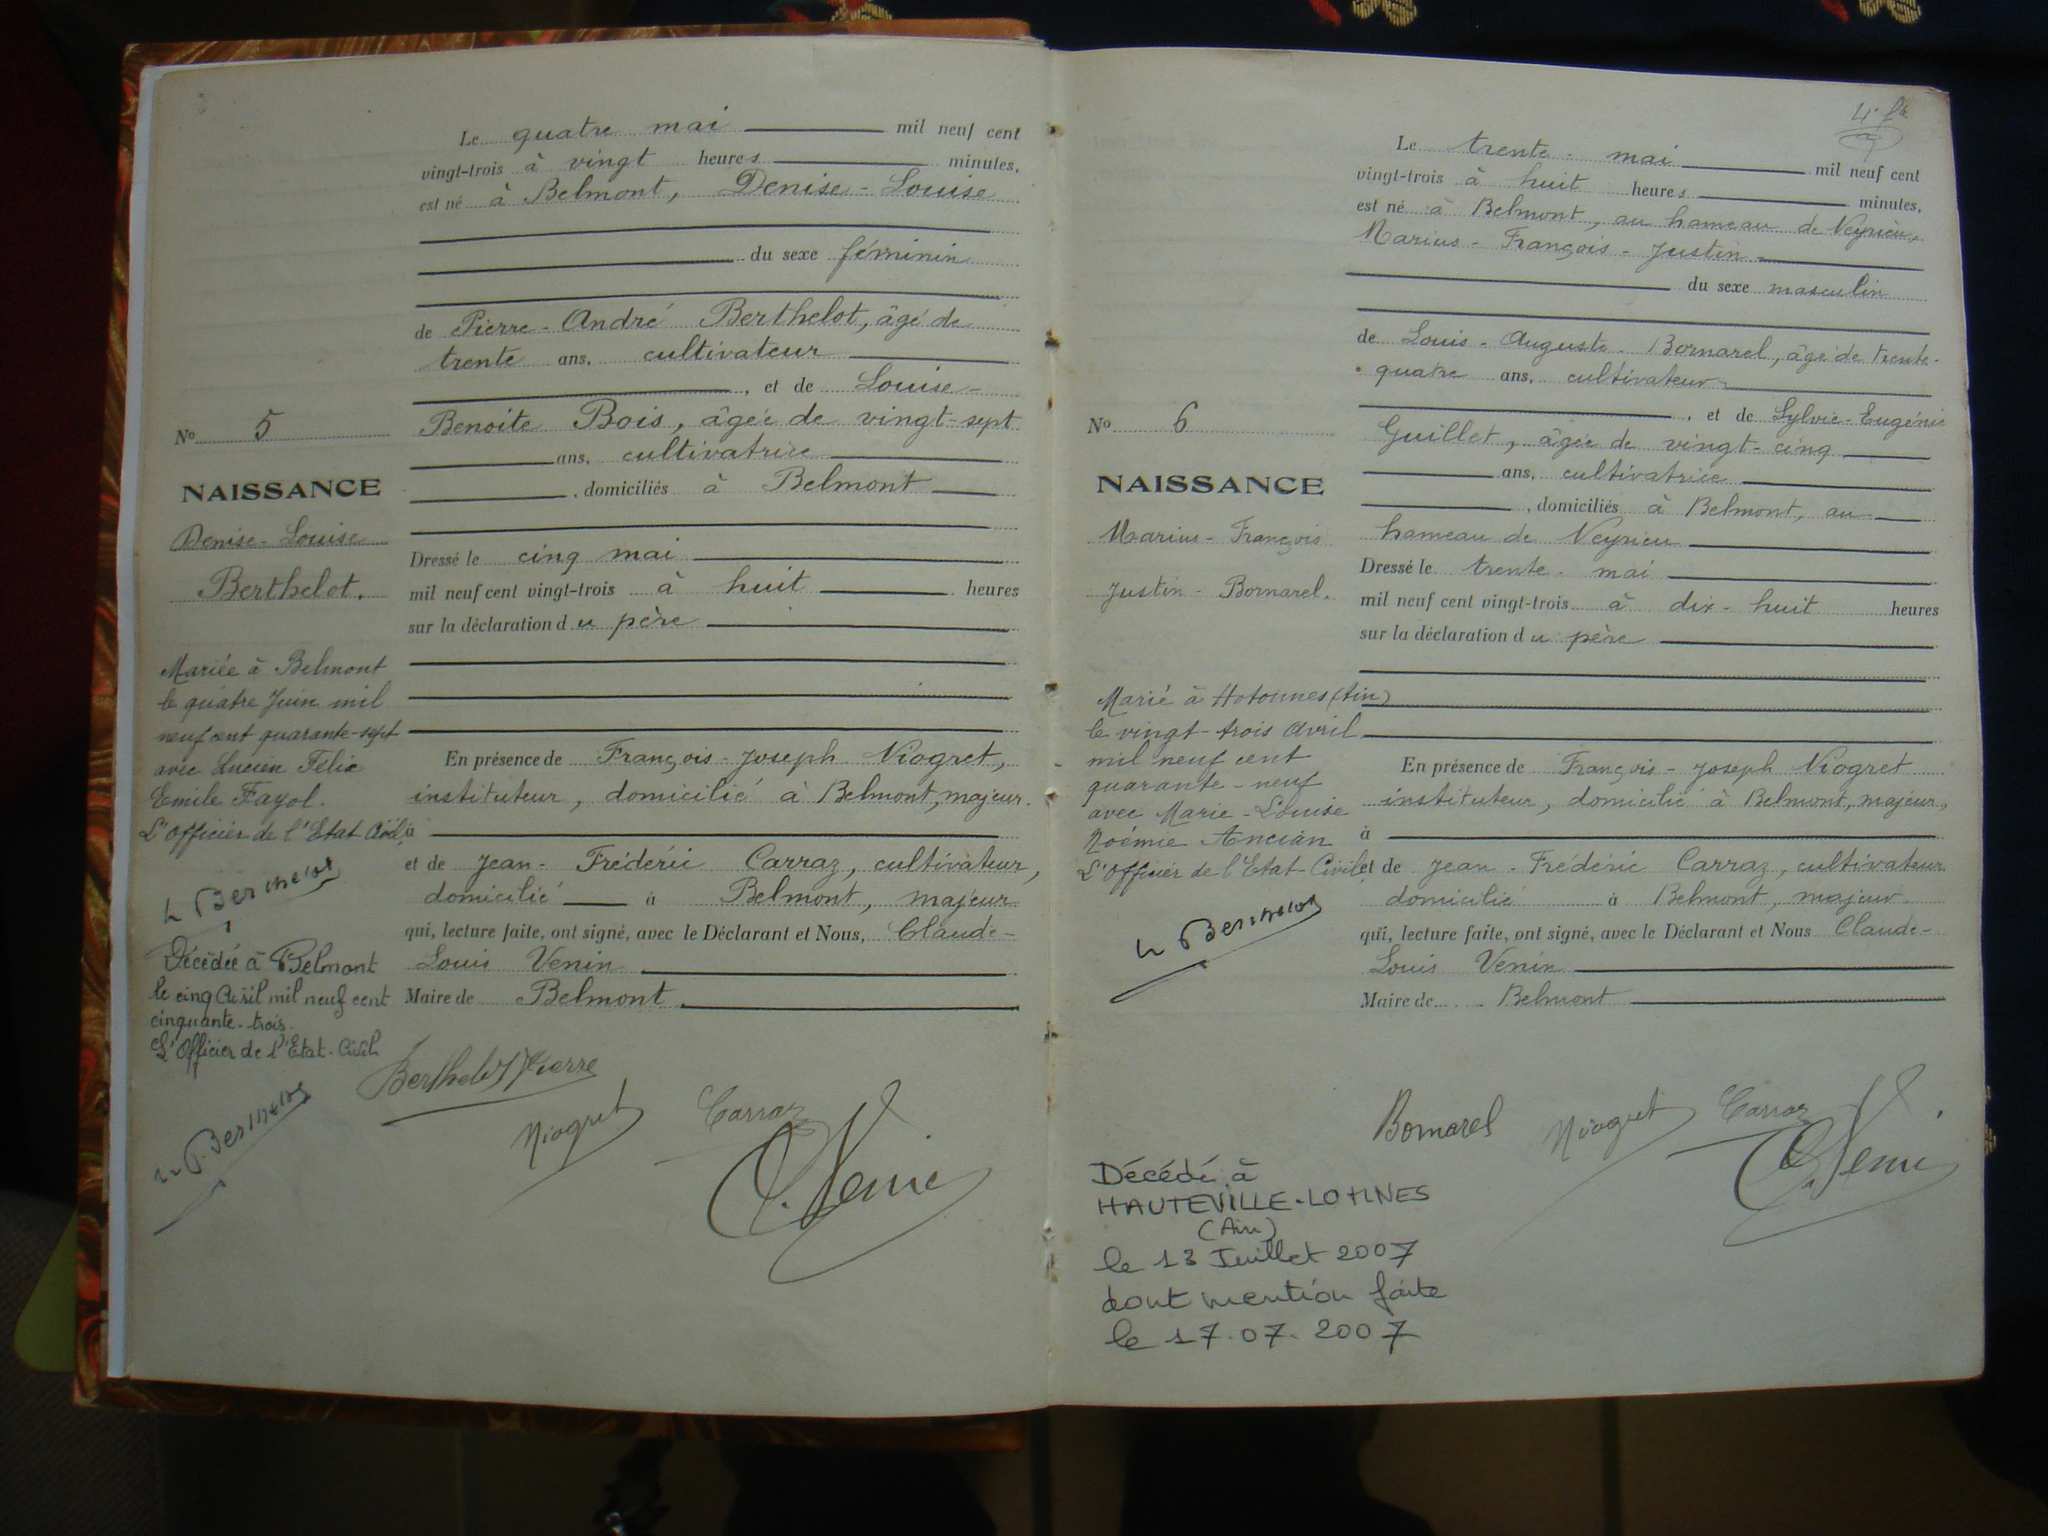 Le quatre mai mil neuf cent
vingt-trois à vingt heures minutes,
est né à Belmont, Denise-Louise
du sexe féminin
de Pierre-André Berthelot, âgé de
trente ans, cultivateur
, et de Louise-
Benoite Bois, âgée de vingt-sept
ans, cultivatrice
, domiciliés à Belmont
Dressé le cinq mai
mil neuf cent vingt-trois à huit heures
sur la déclaration du père
En présence de François-Joseph Niogret,
instituteur, domicilié à Belmont, majeur.
à
et de Jean-Frédéric Carraz, cultivateur,
domicilié à Belmont, majeur
qui, lecture faite, ont signé, avec le Déclarant et Nous, Claude-
Louis Venin
Maire de Belmont
Berthelot Pierre
Niogret
Carraz
C. Venin
No 5
NAISSANCE
Denise-Louise
Berthelot.
Mariée à Belmont
le quatre Juin mil
neuf cent quarante-sept
avec Lucien Félix
Emile Fayol.
L'officier de l'Etat Civil,
Berthelot
Décédée à Belmont
le cinq Avril mil neuf cent
cinquante-trois.
L'Officier de l'Etat-Civil
Berthelot
4e ft
Le trente-mai mil neuf cent
vingt-trois à huit heures minutes,
est né à Belmont, au hameau de Neyrieu,
Marius-François-Justin
du sexe masculin
de Louis-Auguste-Bornarel, âgé de trente-
quatre ans, cultivateur
, et de Sylvie-Eugénie
Guillet, âgée de vingt-cinq
ans, cultivatrice
, domiciliés à Belmont, au
hameau de Neyrieu
Dressé le trente-mai
mil neuf cent vingt-trois à dix-huit heures
sur la déclaration du père
En présence de François-Joseph Niogret
instituteur, domicilié à Belmont, majeur,
à
et de Jean-Frédéric Carraz, cultivateur
domicilié à Belmont, majeur.
qui, lecture faite, ont signé, avec le Déclarant et Nous Claude-
Louis Venin
Maire de Belmont
Bornarel
Niogret
Carraz
C. Venin
No 6
NAISSANCE
Marius-François
Justin-Bornarel.
Marié à Hotonnes (Ain)
le vingt-trois Avril
mil neuf cent
quarante-neuf
avec Marie-Louise
Noémie Ancian
L'Officier de l'Etat-Civil,
Berthelot
Décédé à
HAUTEVILLE-LOMPNES
(Ain)
le 13 Juillet 2007
dont mention faite
le 17.07.2007